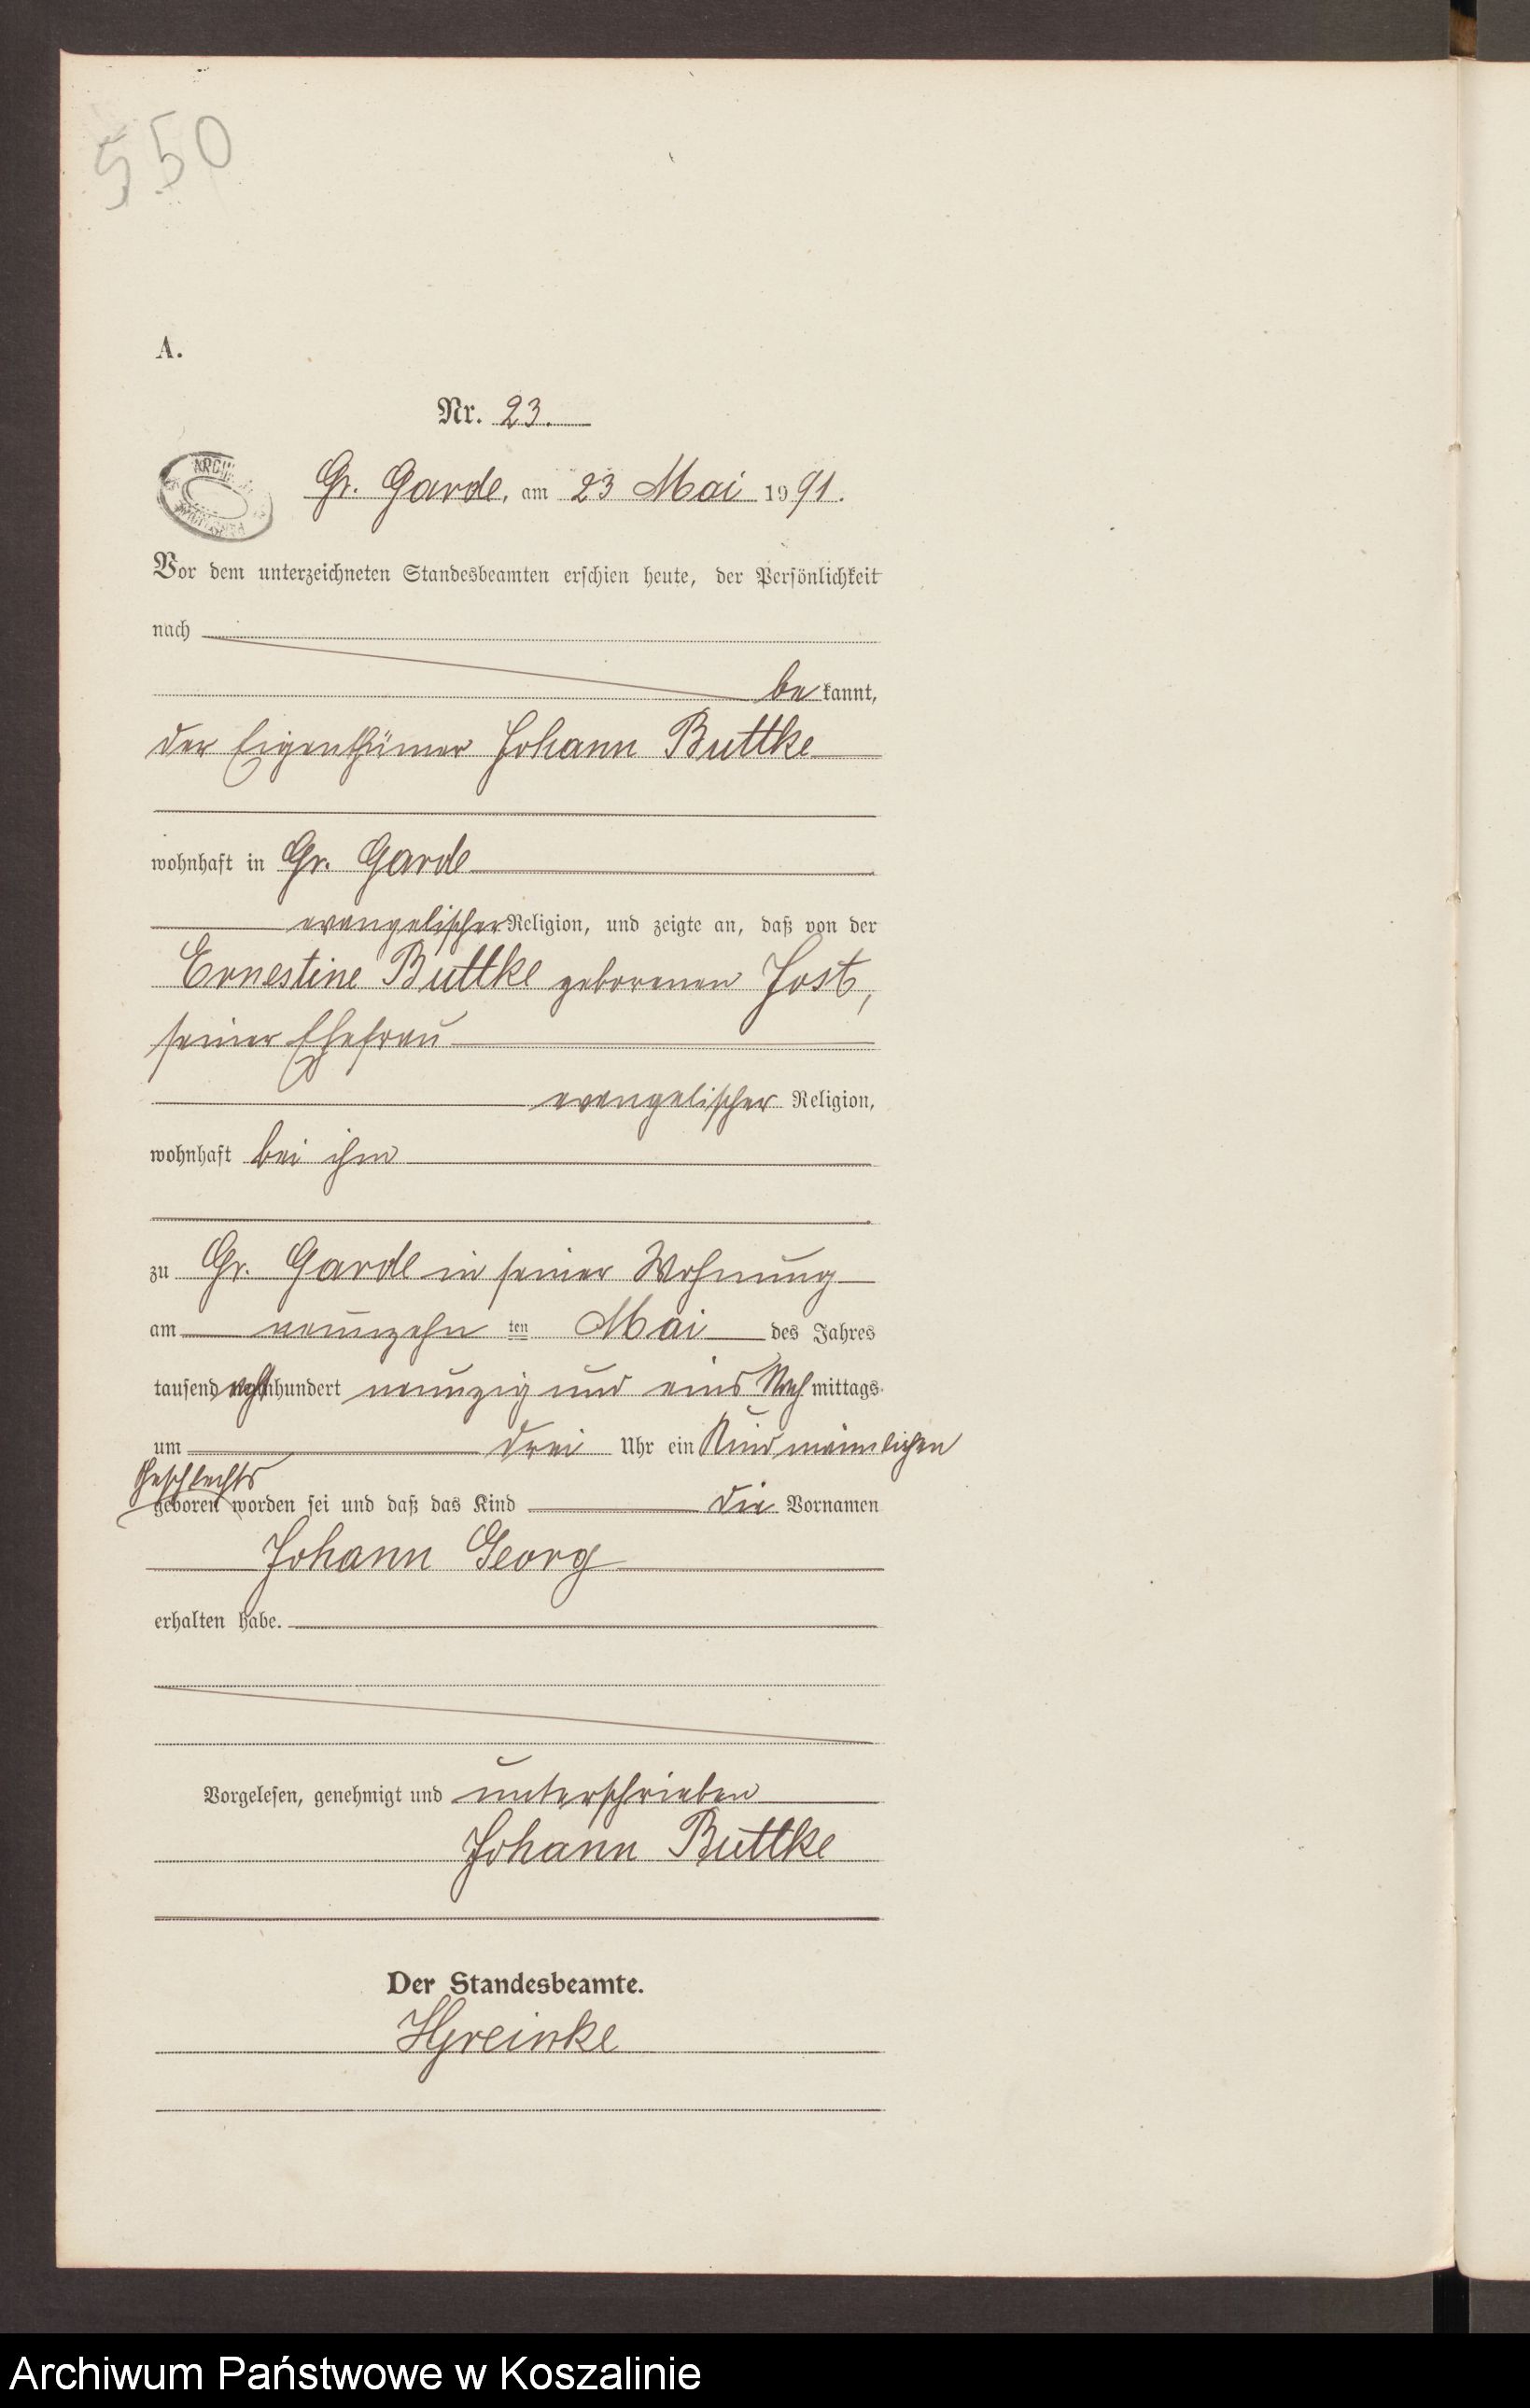 550
A.
Nr. 23.
Gr. Garde, am 23 Mai 1991.
Vor dem unterzeichneten Standesbeamten erschien heute, der Persönlichkeit
nach
bekannt,
der Eigenthümer Johann Buttke
wohnhaft in Gr. Garde
evangelischer Religion, und zeigte an, daß von der
Ernestine Buttke geborenen Jost,
seiner Ehefrau
evangelischer Religion,
wohnhaft bei ihm
zu Gr. Garde in seiner Wohnung
am neunzehn ten Mai des Jahres
tausend achthundert neunzig und eins Nachmittags
um drei Uhr ein Kind männlichen
Geschlechts
geboren worden sei und daß das Kind die Vornamen
Johann Georg
erhalten habe.
Vorgelesen, genehmigt und unterschrieben
Johann Buttke
Der Standesbeamte.
Archiwum Państwowe w Koszalinie